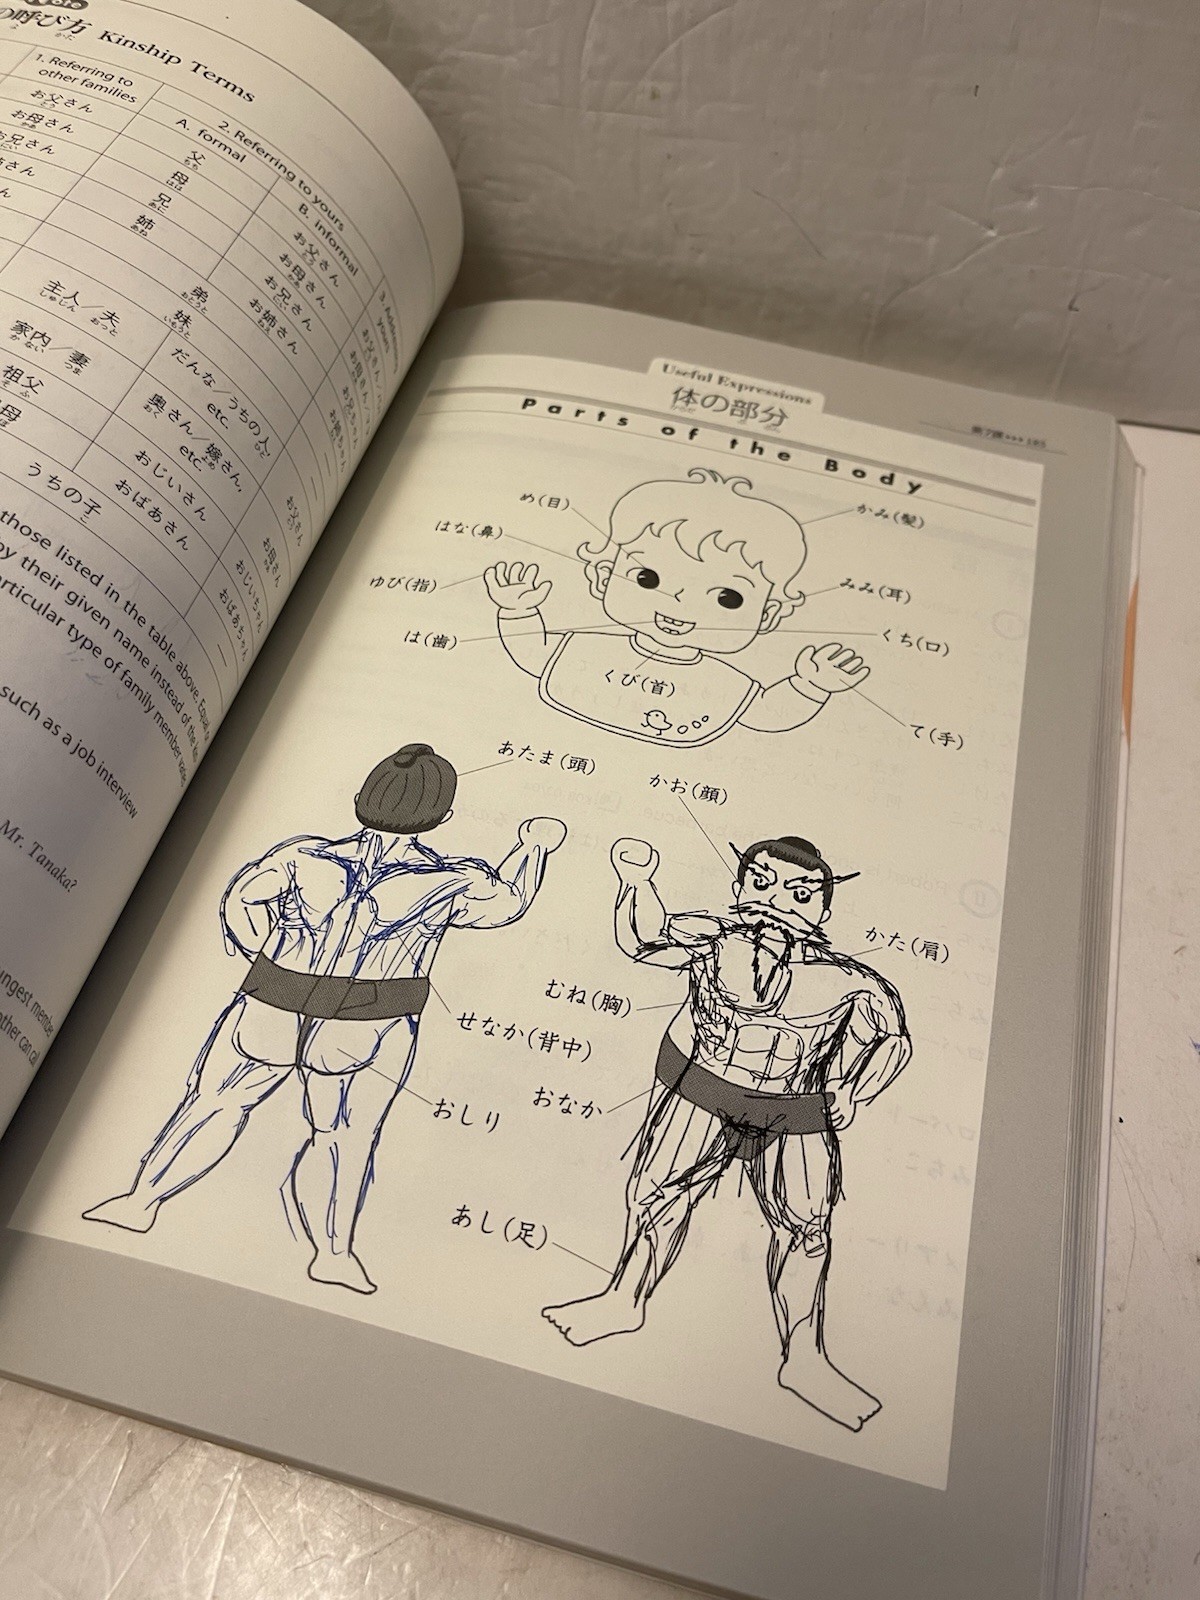 の呼び方 Kinship Terms
1. Referring to
other families
2. Referring to yours
A. formal
B. informal
3. Addressing
yours
お父さん
お母さん
お兄さん
さん
ん
父
ちち
母
はは
兄
あに
姉
あね
お父さん
お母さん
お兄さん
お姉さん
弟
おとうと
妹
いもうと
主人／夫
しゅじん おっと
家内／妻
かない つま
祖父
そふ
母
だんな／うちの人
etc.
奥さん／嫁さん,
etc.
おじいさん
おばあさん
うちの子
お父さん
お母さん
おじいちゃん
おばあちゃん
those listed in the table above.
by their given name instead of the
articular type of family member
such as a job interview
Mr. Tanaka?
ungest membe
other can cal
Useful Expressions
体の部分
Parts of the Body
第7課 185
め(目)
かみ(髪)
はな(鼻)
ゆび(指)
みみ(耳)
は(歯)
くち(口)
くび(首)
て(手)
あたま(頭)
かお(顔)
かた(肩)
むね(胸)
せなか(背中)
おなか
おしり
あし(足)